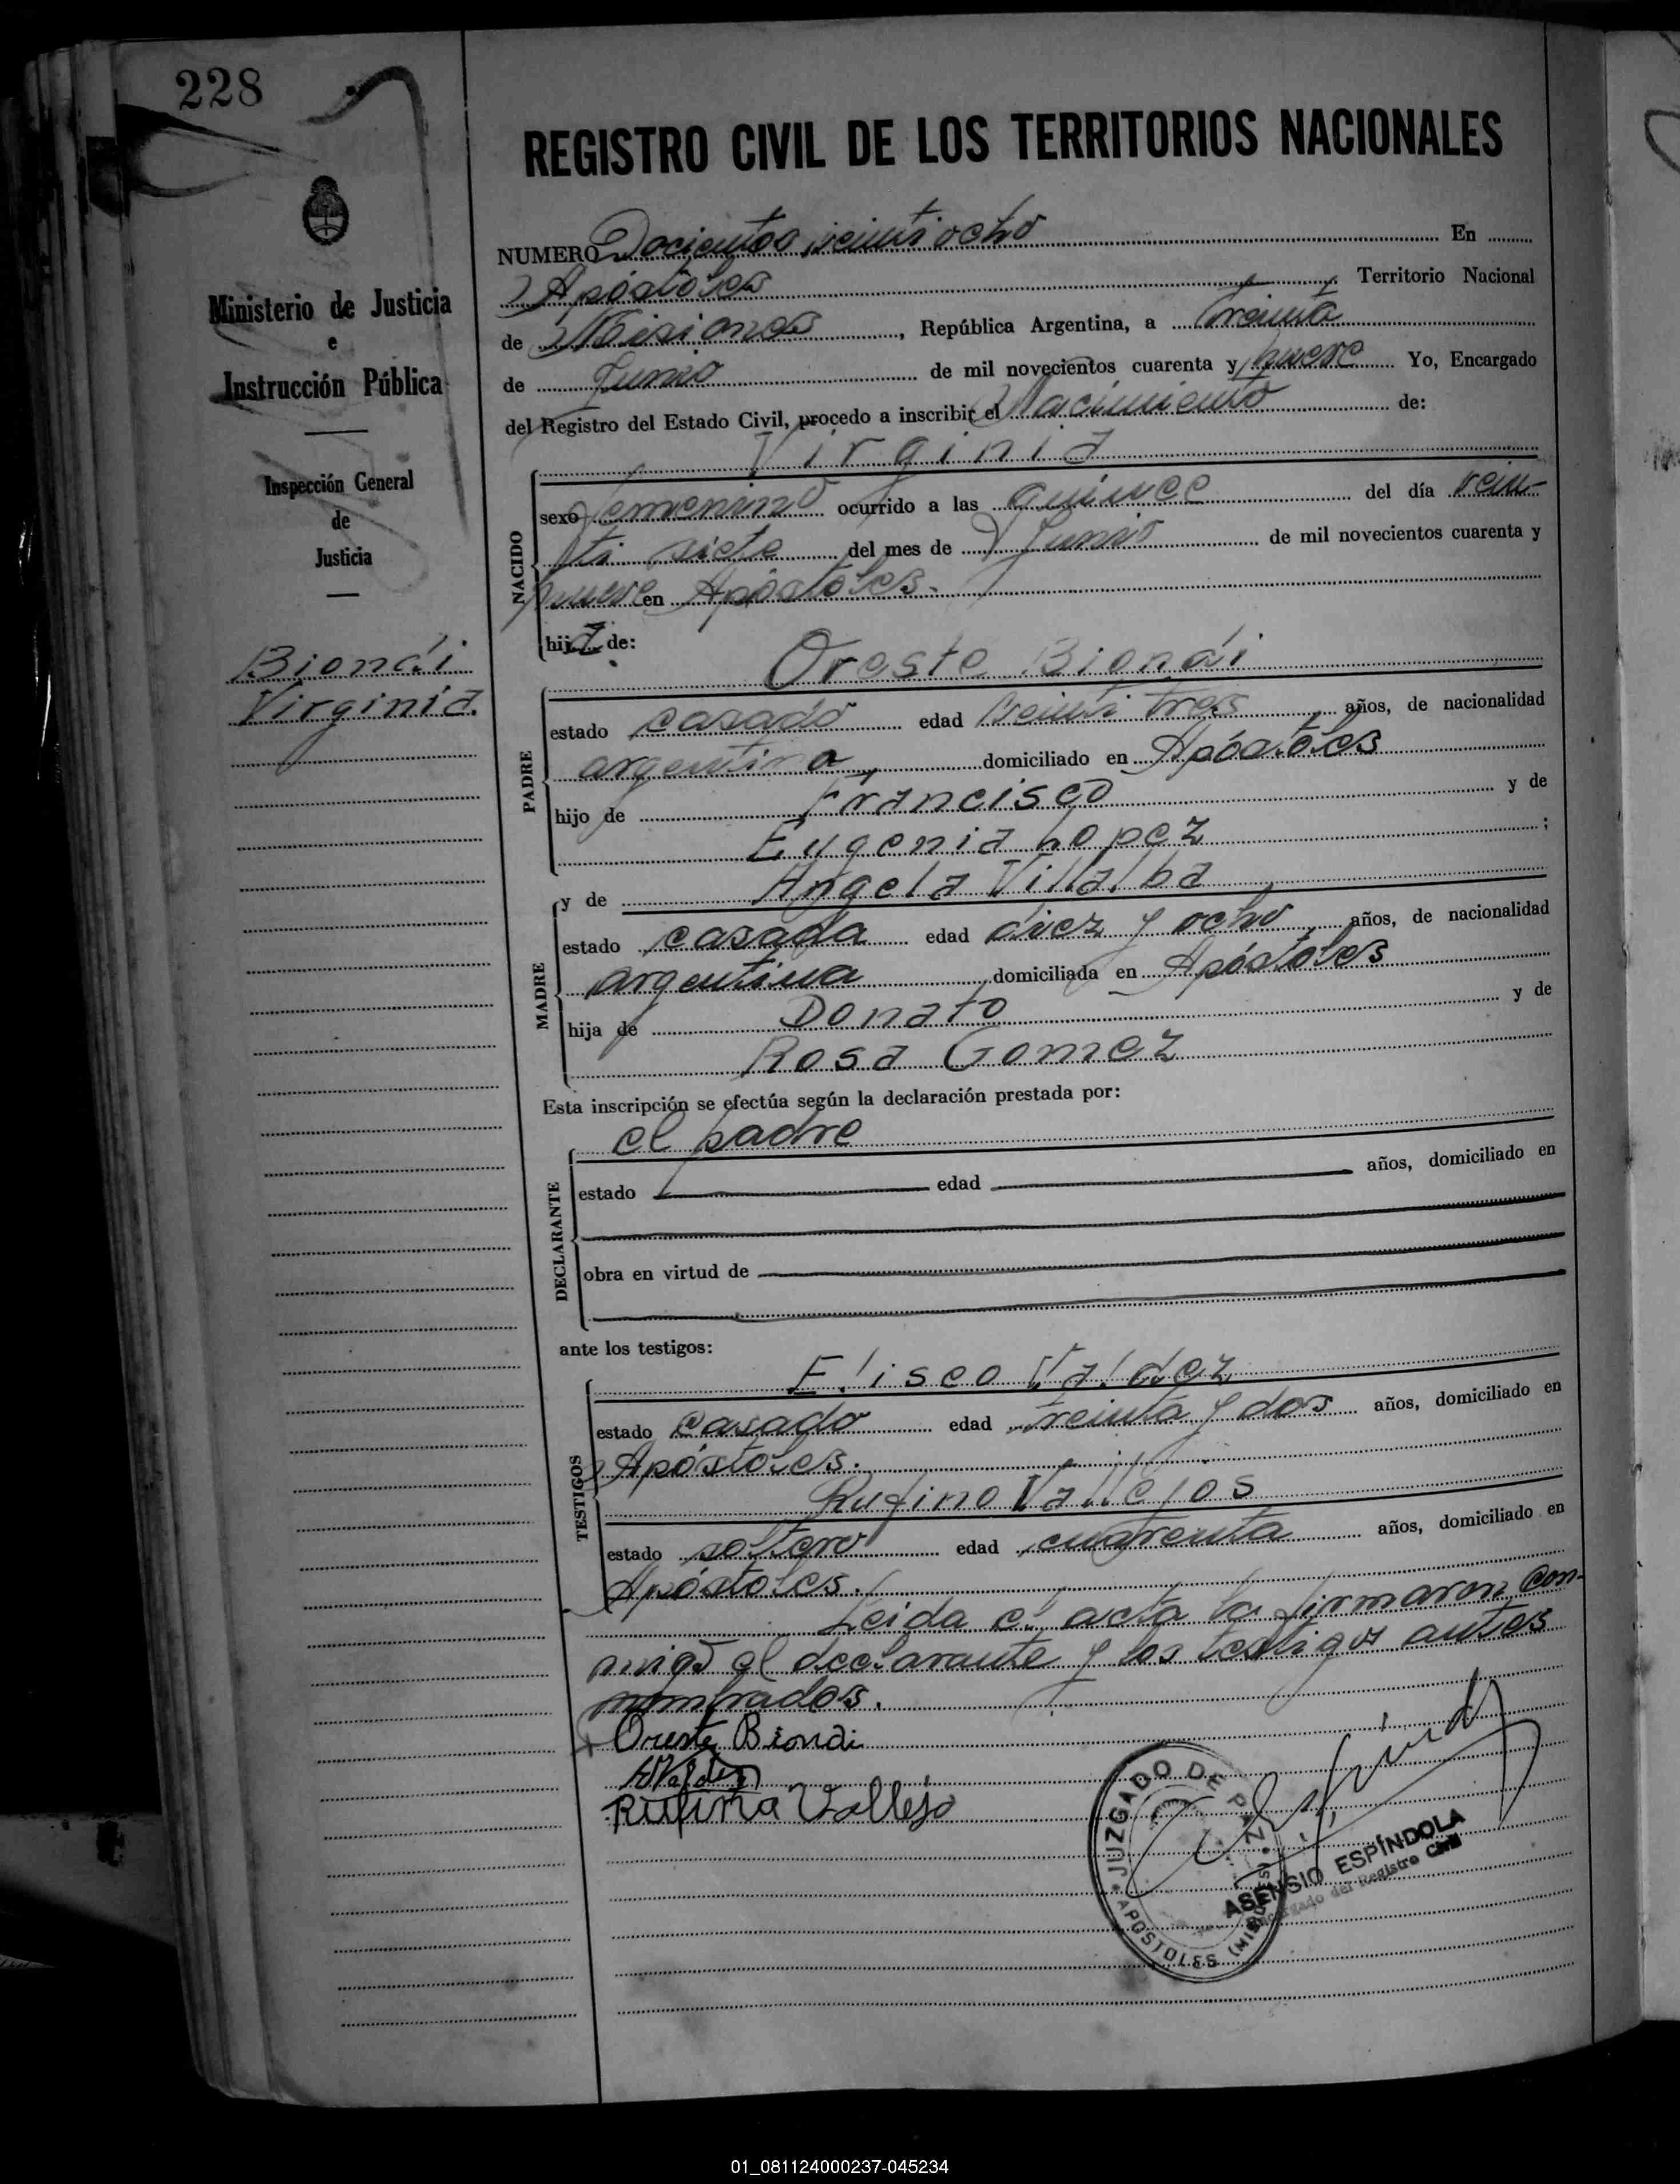 228
REGISTRO CIVIL DE LOS TERRITORIOS NACIONALES
Ministerio de Justicia
e
Instrucción Pública
Inspección General
de
Justicia
Biondi
Virginia.
NUMERO Docientos veinti ocho En
Apóstoles Territorio Nacional
de Misiones, República Argentina, a treinta
de Junio de mil novecientos cuarenta y nueve Yo, Encargado
del Registro del Estado Civil, procedo a inscribir el Nacimiento de:
Virginia
NACIDO
sexo femenino ocurrido a las quince del día vein-
ti siete del mes de Junio de mil novecientos cuarenta y
nueve en Apóstoles.
hija de:
Oreste Biondi
PADRE
estado casado edad veinti tres años, de nacionalidad
argentina domiciliado en Apóstoles
hijo de Francisco y de
Eugenia Lopez ;
y de Angela Villalba
MADRE
estado casada edad diez y ocho años, de nacionalidad
argentina domiciliada en Apóstoles
hija de Donato y de
Rosa Gomez
Esta inscripción se efectúa según la declaración prestada por:
el padre
DECLARANTE
estado edad años, domiciliado en
obra en virtud de
ante los testigos:
Eliseo Valdez
TESTIGOS
estado casado edad treinta y dos años, domiciliado en
Apóstoles.
Rufino Vallejos
estado soltero edad cuarenta años, domiciliado en
Apóstoles.
Leida el acta la firmaron con-
migo el declarante y los testigos antes
nombrados.
Oreste Biondi
Rufina Vallejo
JUZGADO DE PAZ
APOSTOLES (MISIONES)
ASENSIO ESPÍNDOLA
Encargado del Registro Civil
01_081124000237-045234